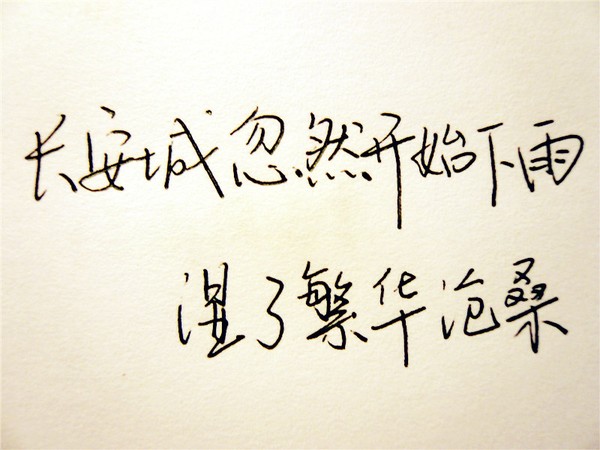 长安城忽然开始下雨
湿了繁华沧桑